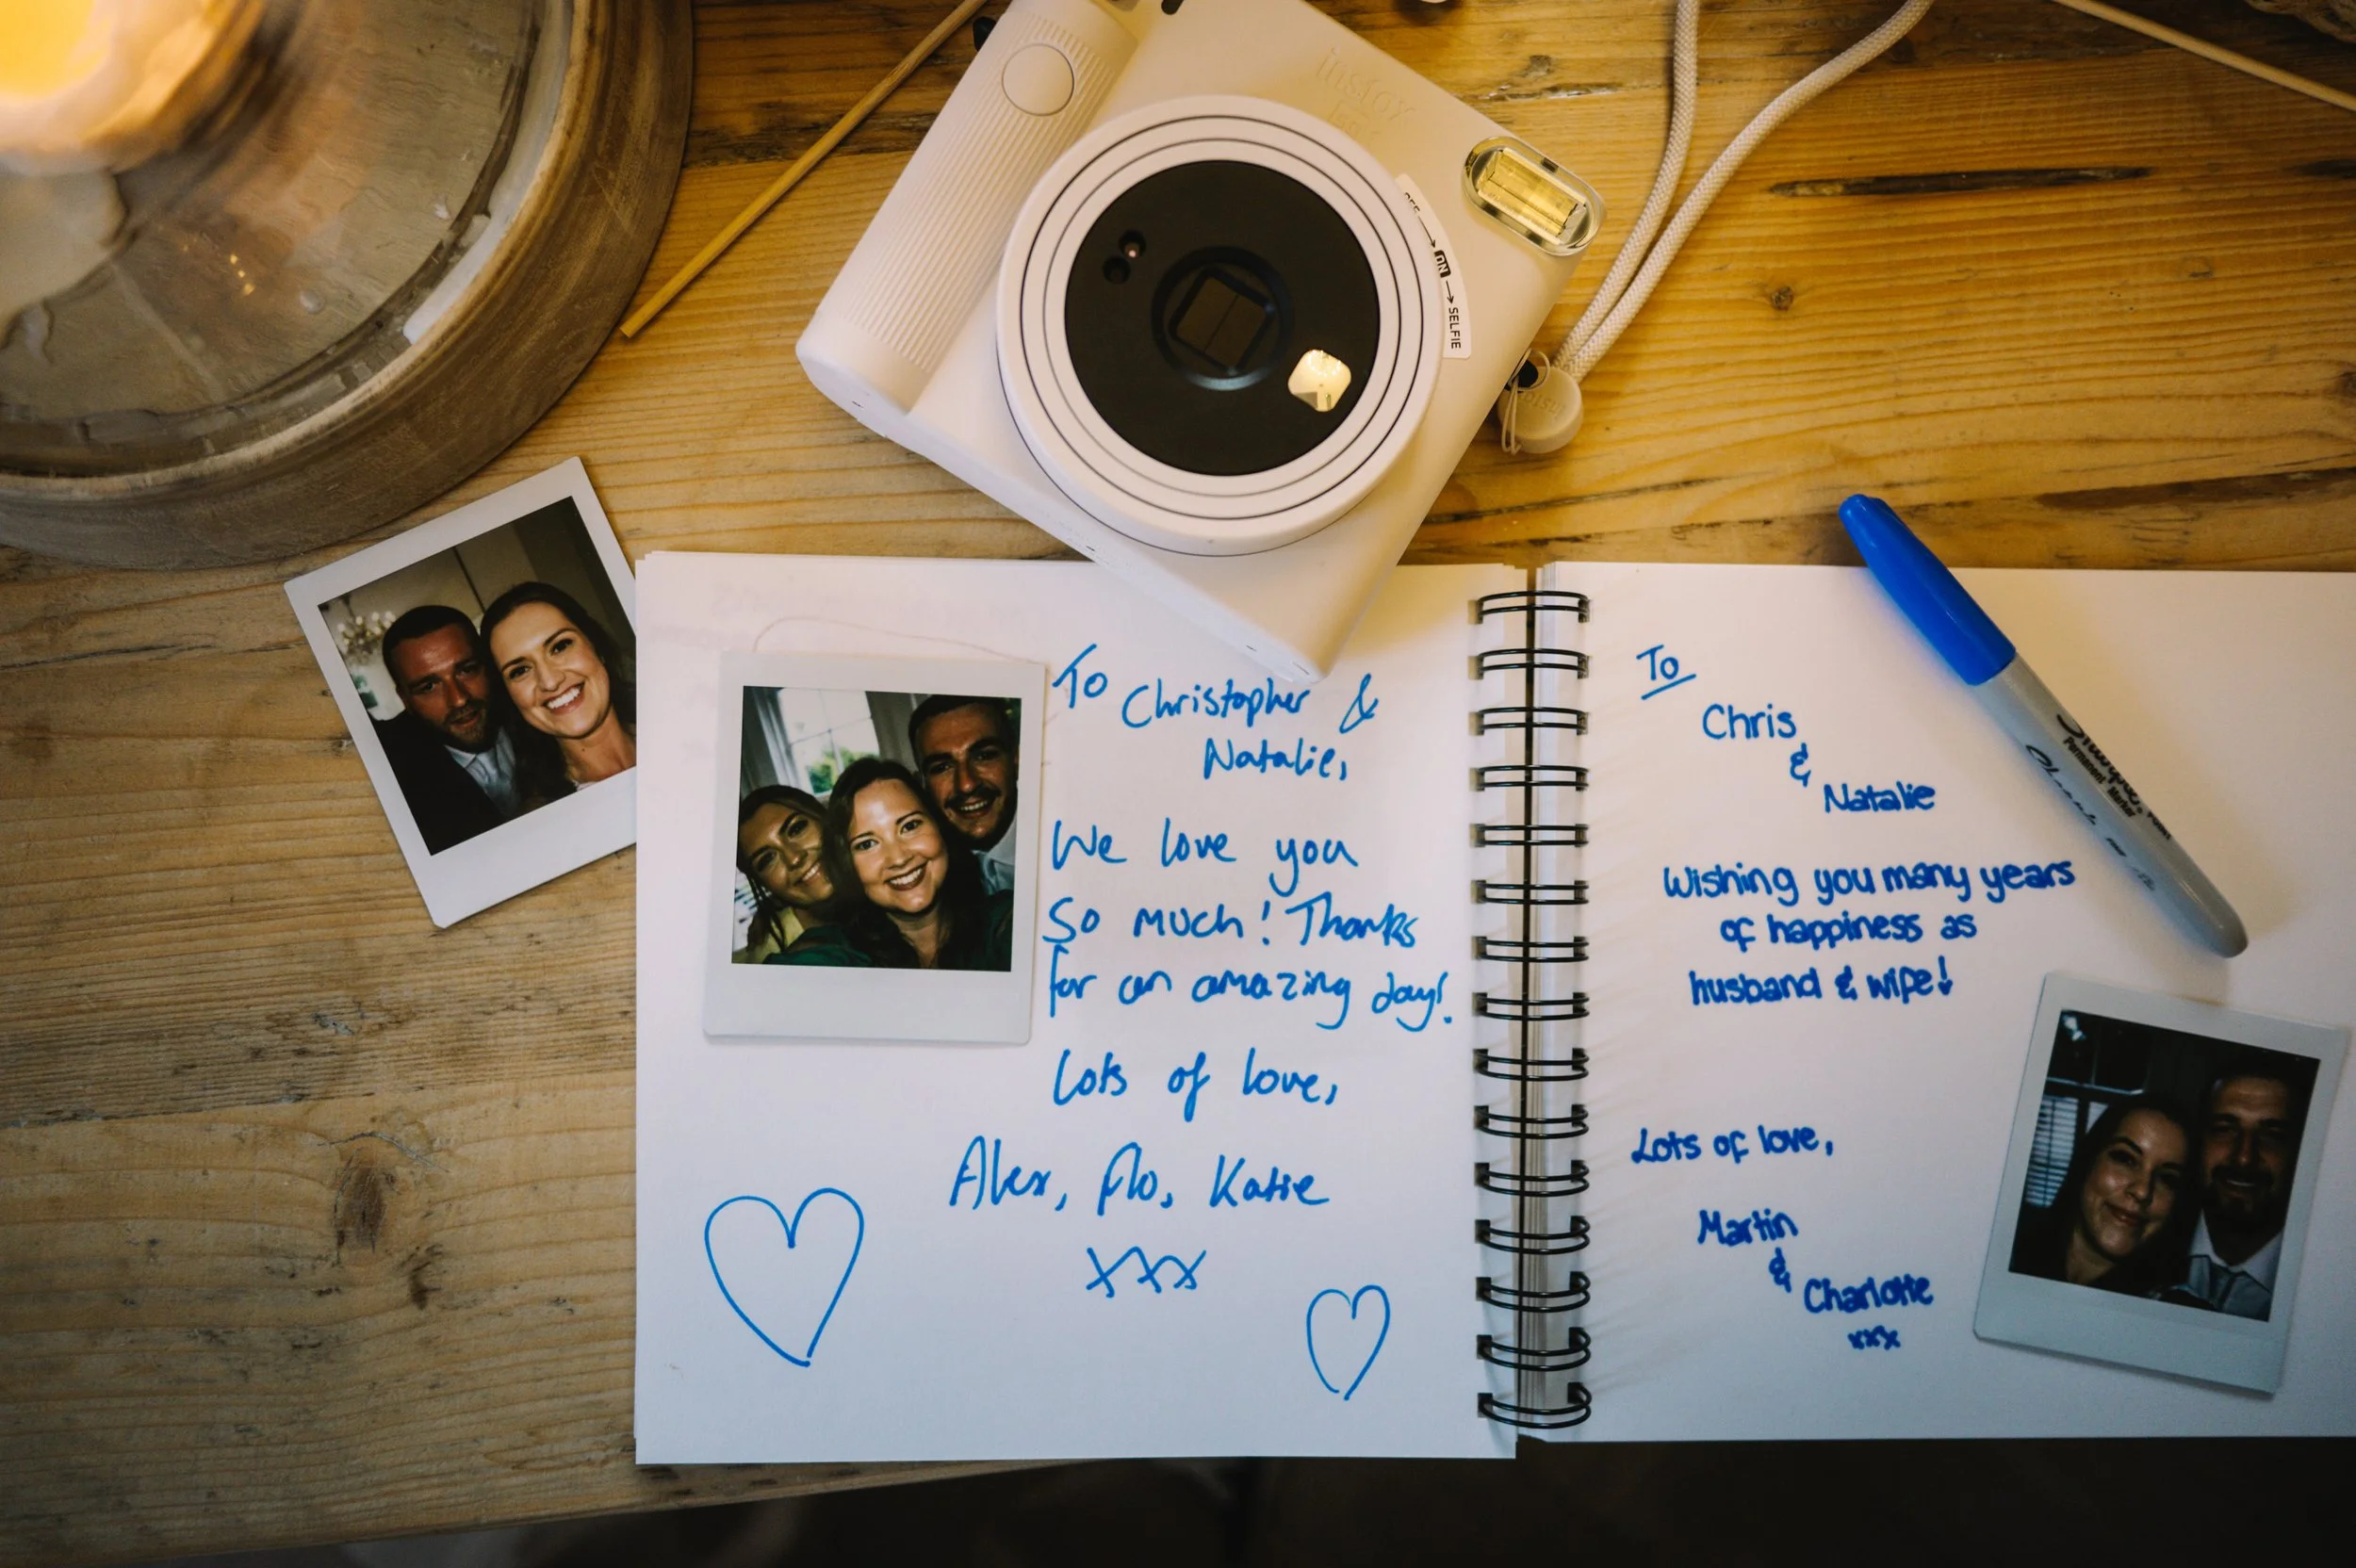 instax
OFF → ON → SELFIE
To Christopher &
Natalie,
We love you
So much! Thanks
for an amazing day!
Lots of love,
Alex, Flo, Katie
xxx
To
Chris
&
Natalie
Wishing you many years
of happiness as
husband & wife!
Lots of love,
Martin
&
Charlotte
xxx
Sharpie
Permanent
Marker